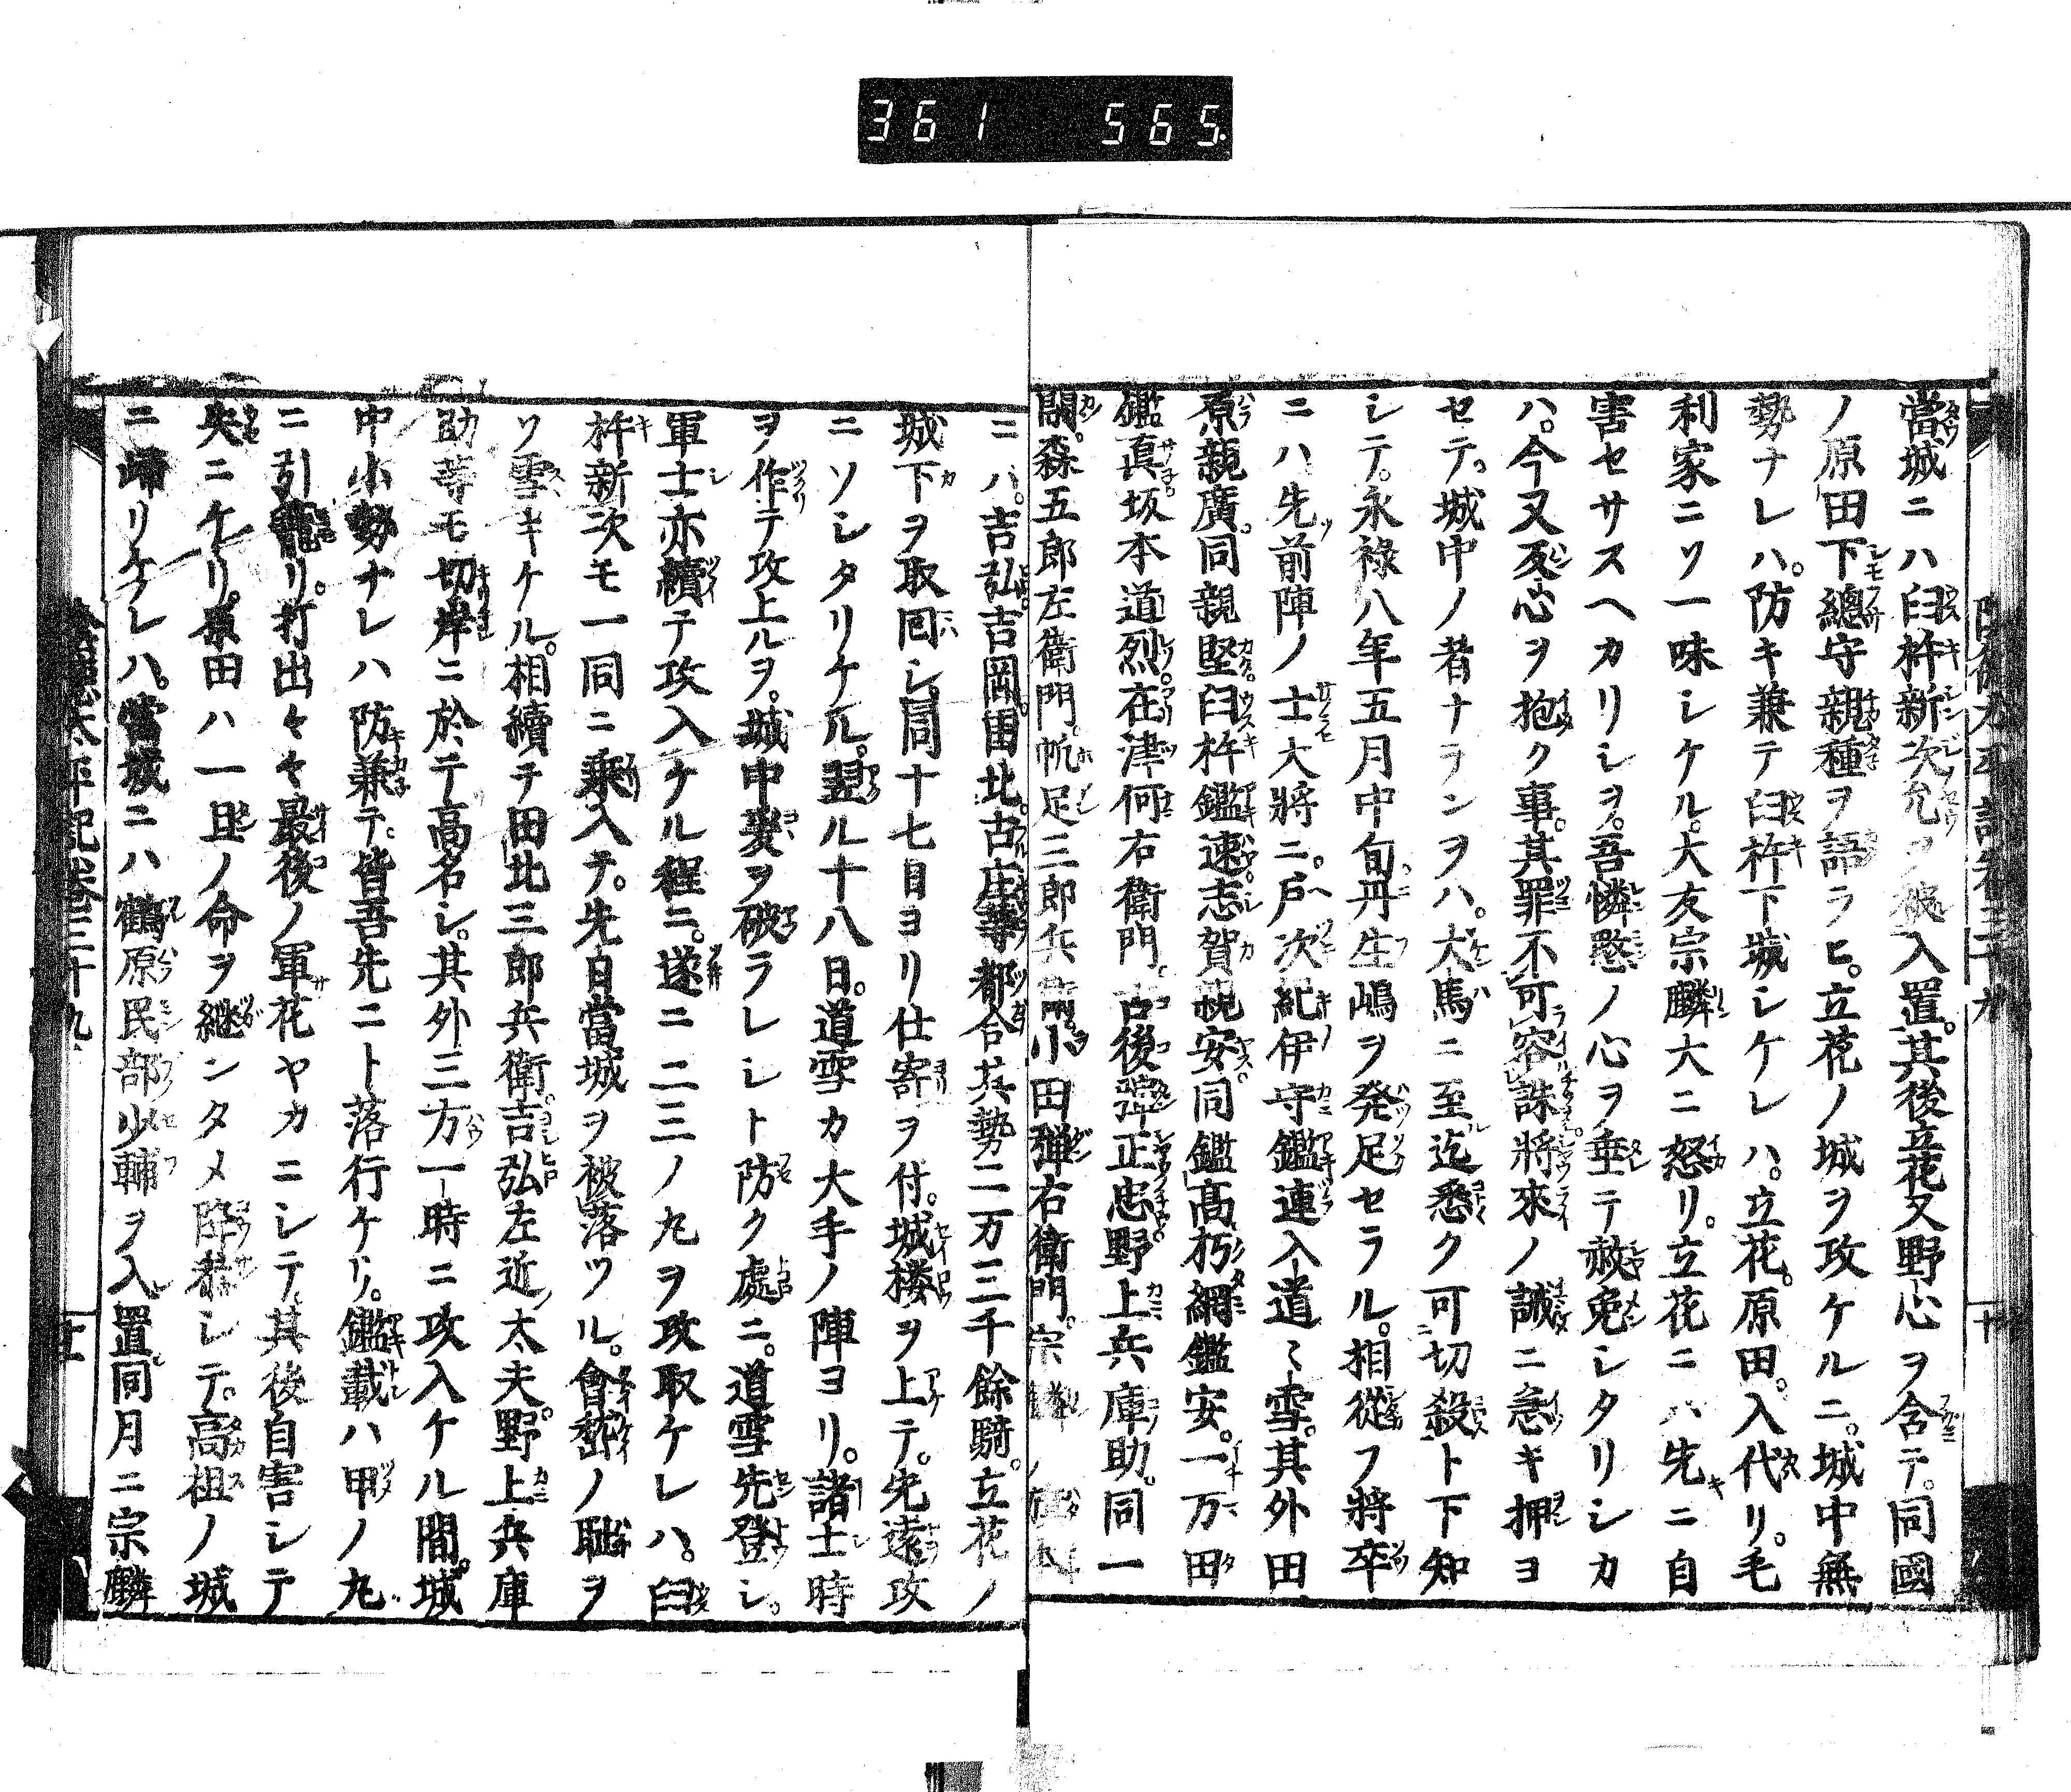 361 565.
當城ニハ臼杵新次允ヲ被入置。其後立花又野心ヲ含テ。同國
ノ原田下總守親種ヲ語ラヒ。立花ノ城ヲ攻ケルニ。城中無
勢ナレハ。防キ兼テ臼杵下城シケレハ。立花。原田。入代リ。毛
利家ニソ一味シケル。大友宗麟大ニ怒リ。立花ニハ先ニ自
害セサスヘカリシヲ。吾憐愍ノ心ヲ垂テ赦免シタリシカ
ハ。今又反心ヲ抱ク事。其罪不可容誅將來ノ誡ニ急キ押ヨ
セテ。城中ノ者ナヲンヲハ。犬馬ニ至迄悉ク可切殺ト下知
シテ。永祿八年五月中旬。丹生嶋ヲ発足セラル。相從フ將卒
ニハ先前陣ノ士大將ニ。戸次紀伊守鑑連入道〻雪。其外田
原親廣。同親堅。臼杵鑑速。志賀親安。同鑑高。朽網鑑安。一万田
鑑真。坂本道烈。在津何右衛門。古後彈正忠。野上兵庫助。同一
閑。森五郎左衛門。帆足三郎兵衛。小田彈右衛門。宗
ニハ。吉弘。吉岡。田北。古庄等都合其勢二万三千餘騎。立花ノ
城下ヲ取囘シ。同十七日ヨリ仕寄ヲ付。城楼ヲ上テ。先遠攻
ニソシタリケル。翌ル十八日。道雪カ大手ノ陣ヨリ。諸士時
ヲ作テ攻上ルヲ。城中爰ヲ破ラレシト防ク處ニ。道雪先登シ。
軍士亦續テ攻入ケル程ニ。遂ニ二三ノ丸ヲ攻取ケレハ。臼
杵新次モ一同ニ乗入テ。先日當城ヲ被落ツル。會嵆ノ耻ヲ
ソ雪キケル。相續テ田北三郎兵衛。吉弘左近太夫。野上兵庫
助等モ切岸ニ於テ高名シ。其外三方一時ニ攻入ケル間。城
中小勢ナレハ防兼テ。皆吾先ニト落行ケリ。鑑載ハ甲ノ丸
ニ引籠リ。打出々々最後ノ軍花ヤカニシテ。其後自害シテ
失ニケリ。原田ハ一旦ノ命ヲ継ンタメ降参シテ。高祖ノ城
ニ歸リケレハ。當城ニハ鶴原民部少輔ヲ入置。同月ニ宗麟
太平記卷三十九